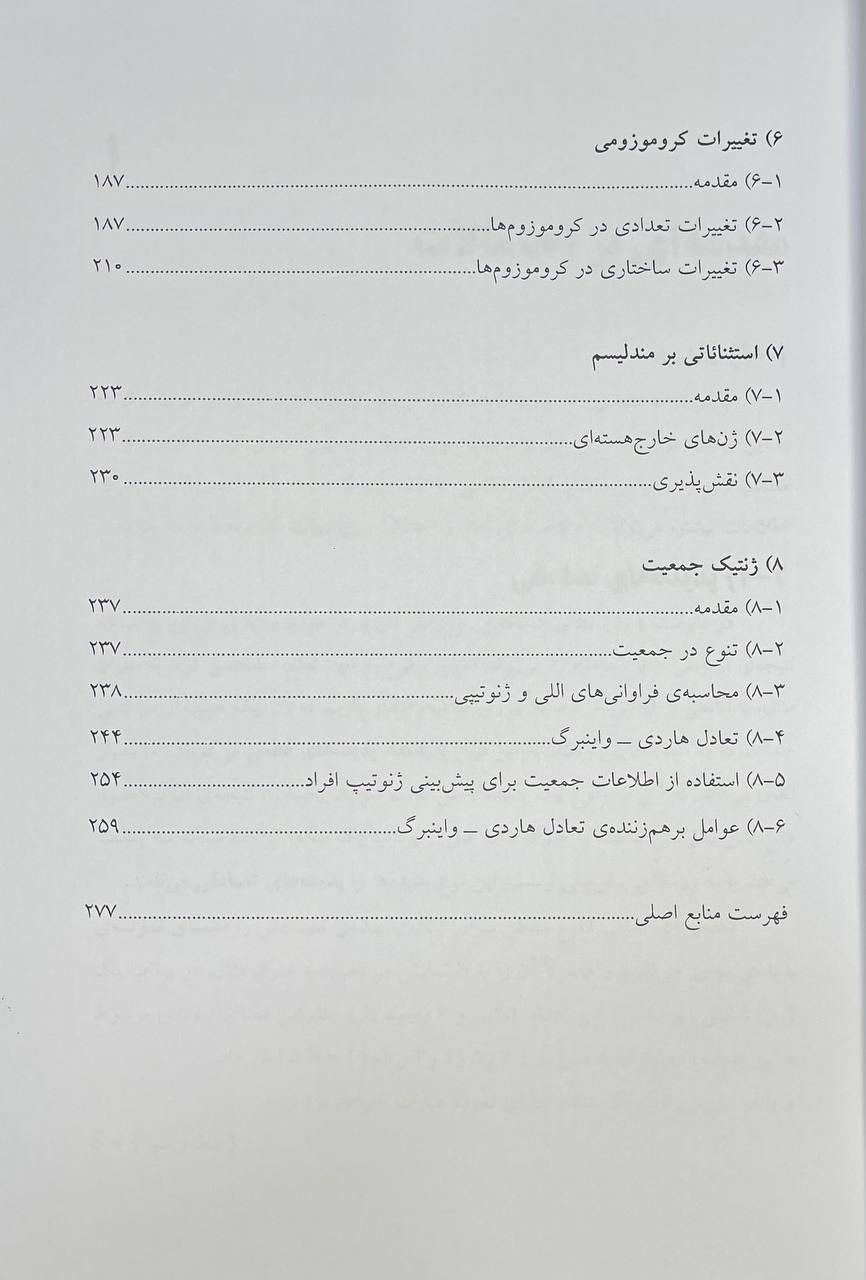 ۶) تغییرات کروموزومی
۶-۱) مقدمه................................................۱۸۷
۶-۲) تغییرات تعدادی در کروموزوم‌ها................................................۱۸۷
۶-۳) تغییرات ساختاری در کروموزوم‌ها................................................۲۱۰
۷) استثنائاتی بر مندلیسم
۷-۱) مقدمه................................................۲۲۳
۷-۲) ژن‌های خارج‌هسته‌ای................................................۲۲۳
۷-۳) نقش‌پذیری................................................۲۳۰
۸) ژنتیک جمعیت
۸-۱) مقدمه................................................۲۳۷
۸-۲) تنوع در جمعیت................................................۲۳۷
۸-۳) محاسبه‌ی فراوانی‌های اللی و ژنوتیپی................................................۲۳۸
۸-۴) تعادل هاردی – واینبرگ................................................۲۴۴
۸-۵) استفاده از اطلاعات جمعیت برای پیش‌بینی ژنوتیپ افراد................................................۲۵۴
۸-۶) عوامل برهم‌زننده‌ی تعادل هاردی – واینبرگ................................................۲۵۹
فهرست منابع اصلی................................................۲۷۷